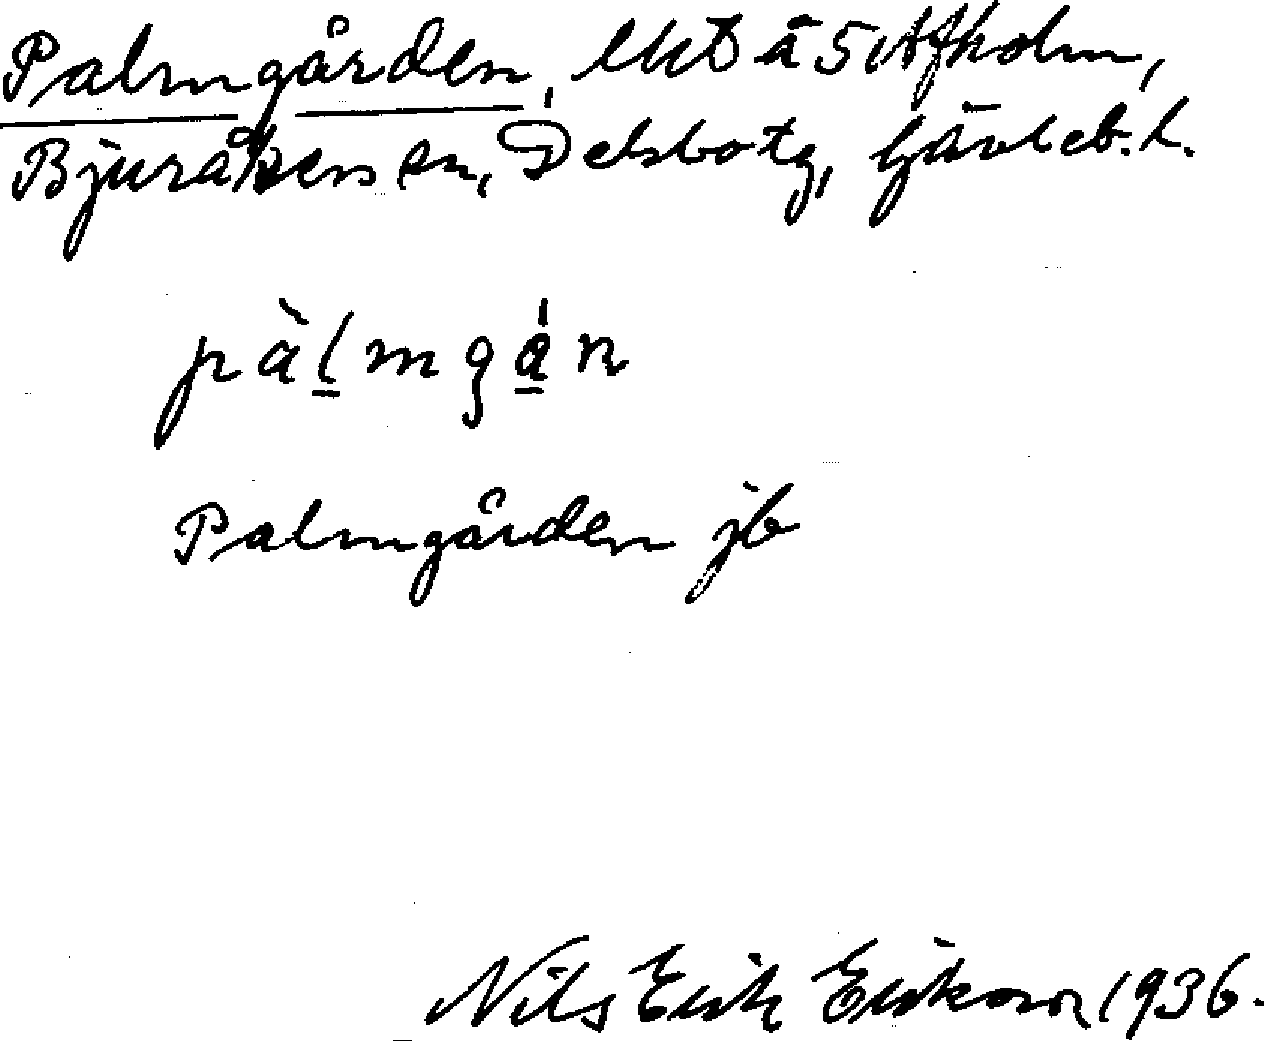 Palmgården, lht å 5 Alfholm,
Bjuråkers sn, Delsbo tg, Gävleb. l.
pàlmgán
Palmgården jb
Nils Erik Erikson 1936.